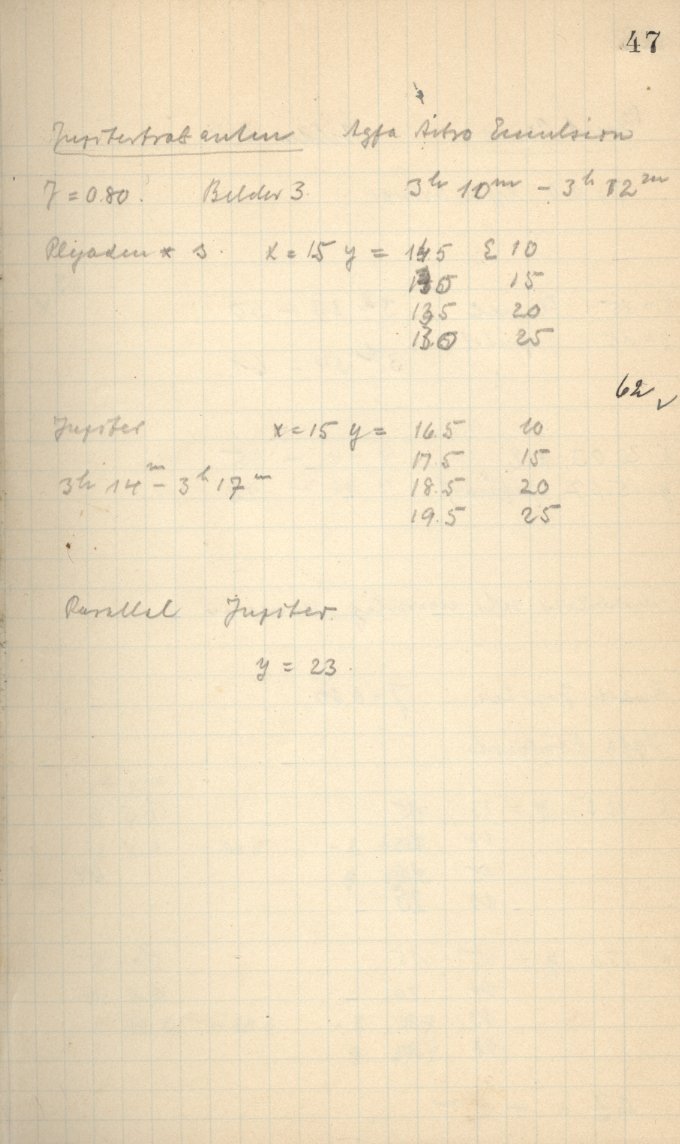 47
Jupitertrabanten Agfa Astro Emulsion
J = 0.80. Bilder 3 3h 10m - 3h 12m
Plejaden * s. x = 15 y = 14.5 ε 10
15
13.5 20
25
62 ✓
Jupiter x = 15 y = 16.5 10
17.5 15
3h 14m - 3h 17m 18.5 20
19.5 25
Parallel Jupiter.
y = 23.